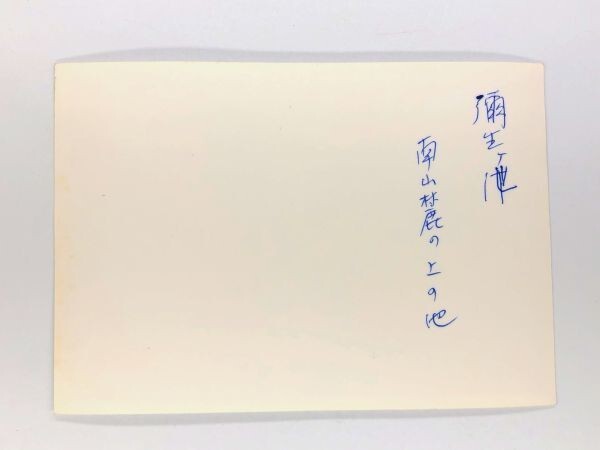 彌生ヶ池
南山麓の上の池